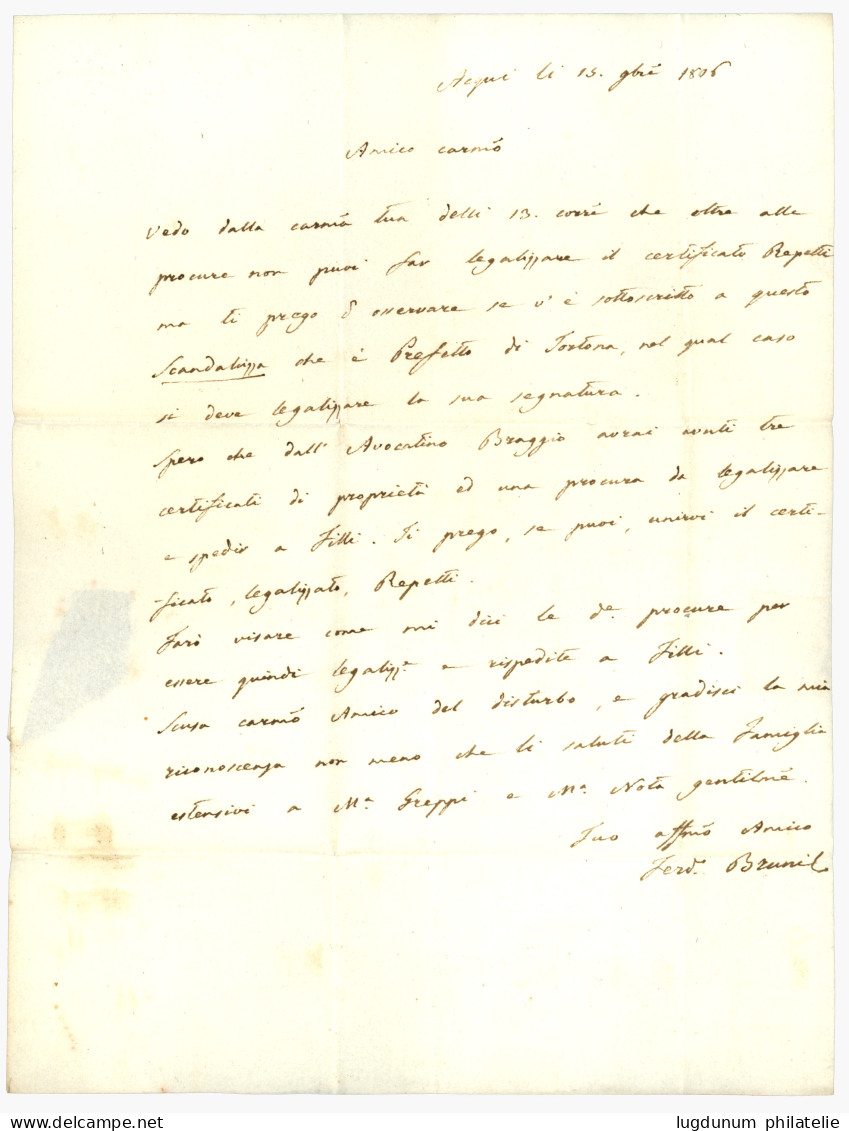 Acqui li 15. 9bre 1806
Amico carmo
Vedo dalla carma tua delli 13. corre che oltre alle
procure non puoi far legalizzare il certificato Repetti
ma ti prego d'osservare se v'è sottoscritto a questo
Scandaluzza che è Prefetto di Tortona, nel qual caso
si deve legalizzare la sua segnatura.
Spero che dall'Avocatino Braggio avrai avuti tre
certificati di proprietà ed una procura da legalizzare
e spedir a Filli. Ti prego, se puoi, unirvi il certi-
ficato, legalizzato, Repetti.
Farò visare come mi dici le de procure per
essere quindi legalizze e rispedite a Filli.
Scusa carmo Amico del disturbo, e gradisci la mia
riconoscenza non meno che li saluti della Famiglia
estensivi a Ma Greppi e Ma Nota gentilme.
Tuo affmo Amico
Ferdo
lugdunum philatelie